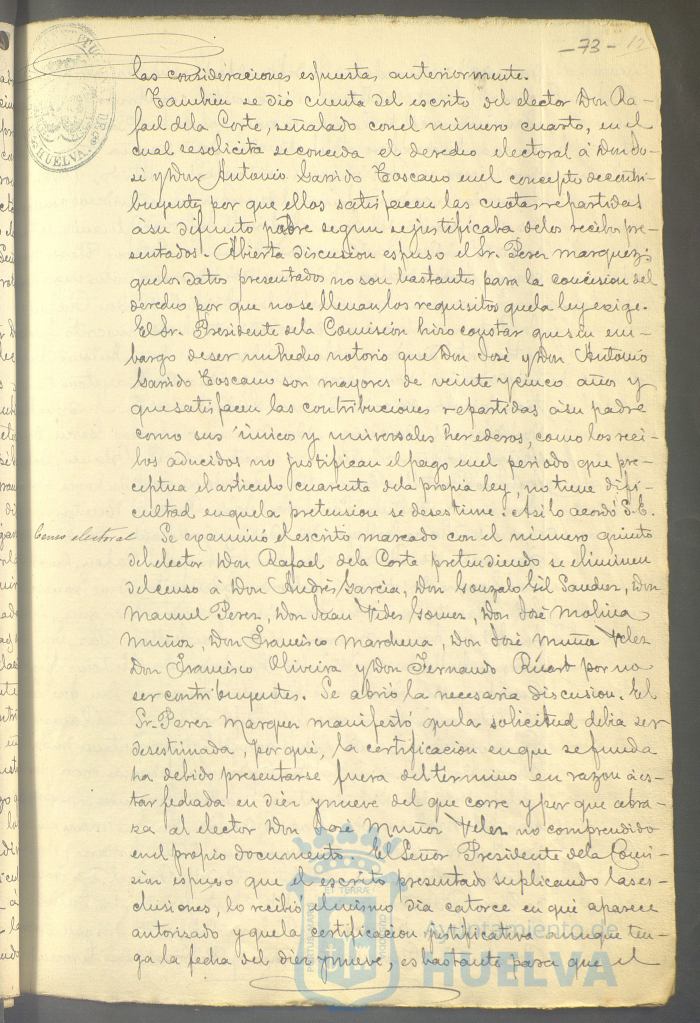 -73- 12
las consideraciones espuestas anteriormente.
Tambien se dió cuenta del escrito del elector Don Ra-
fael dela Corte, señalado conel número cuarto, en el
cual sesolicita se conceda el derecho electoral á Don Jo-
sé y Don Antonio Garrido Toscano enel concepto de contri-
buyentes por que ellos satisfacen las cuotas repartidas
ásu difunto padre segun sejustificaba delos recibos pre-
sentados. Abierta discusion espuso el Sr. Perez Marquez;
quelos datos presentados no son bastantes para la concesion del
derecho por que nose llenan los requisitos quela ley exige.
El Sr. Presidente dela Comisión hizo constar que sin em-
bargo deser un hecho notorio que Don José y Don Antonio
Garrido Toscano son mayores de veinte y cinco años y
quesatisfacen las contribuciones repartidas ásu padre
como sus únicos y universales herederos, como los reci-
bos aducidos no justifican el pago enel periodo que pre-
ceptua el articulo cuarenta dela propia ley, no tiene difi-
cultad enquela pretension se desestime. Asi lo acordó S.E.
Censo electoral
Se examinó el escrito marcado con el número quinto
del elector Don Rafael dela Corte pretendiendo se eliminen
del censo á Don Andrés Garcia, Don Gonzalo Gil Sanchez, Don
Manuel Perez, Don Juan Vides Gomez, Don José Molina
Muñoz, Don Francisco Marchena, Don José Muñoz Velez
Don Francisco Oliveira y Don Fernando Ricart por no
ser contribuyentes. Se abrió la necesaria discusion. El
Sr. Perez Marquez manifestó quela solicitud debia ser
desestimada, porqué, la certificacion enque sefunda
ha debido presentarse fuera del termino en razon á es-
tar fechada en diez y nueve del que corre y por que abra-
za al elector Don José Muñoz Velez no comprendido
enel propio documento. El Señor Presidente dela Comi-
sion espuso que el escrito presentado suplicando las es-
clusiones, lo recibió el mismo dia catorce en que aparece
autorizado y quela certificacion justificativa aunque ten-
ga la fecha del diez y nueve, es bastante para que el
HUELVA
Ayuntamiento de
HUELVA